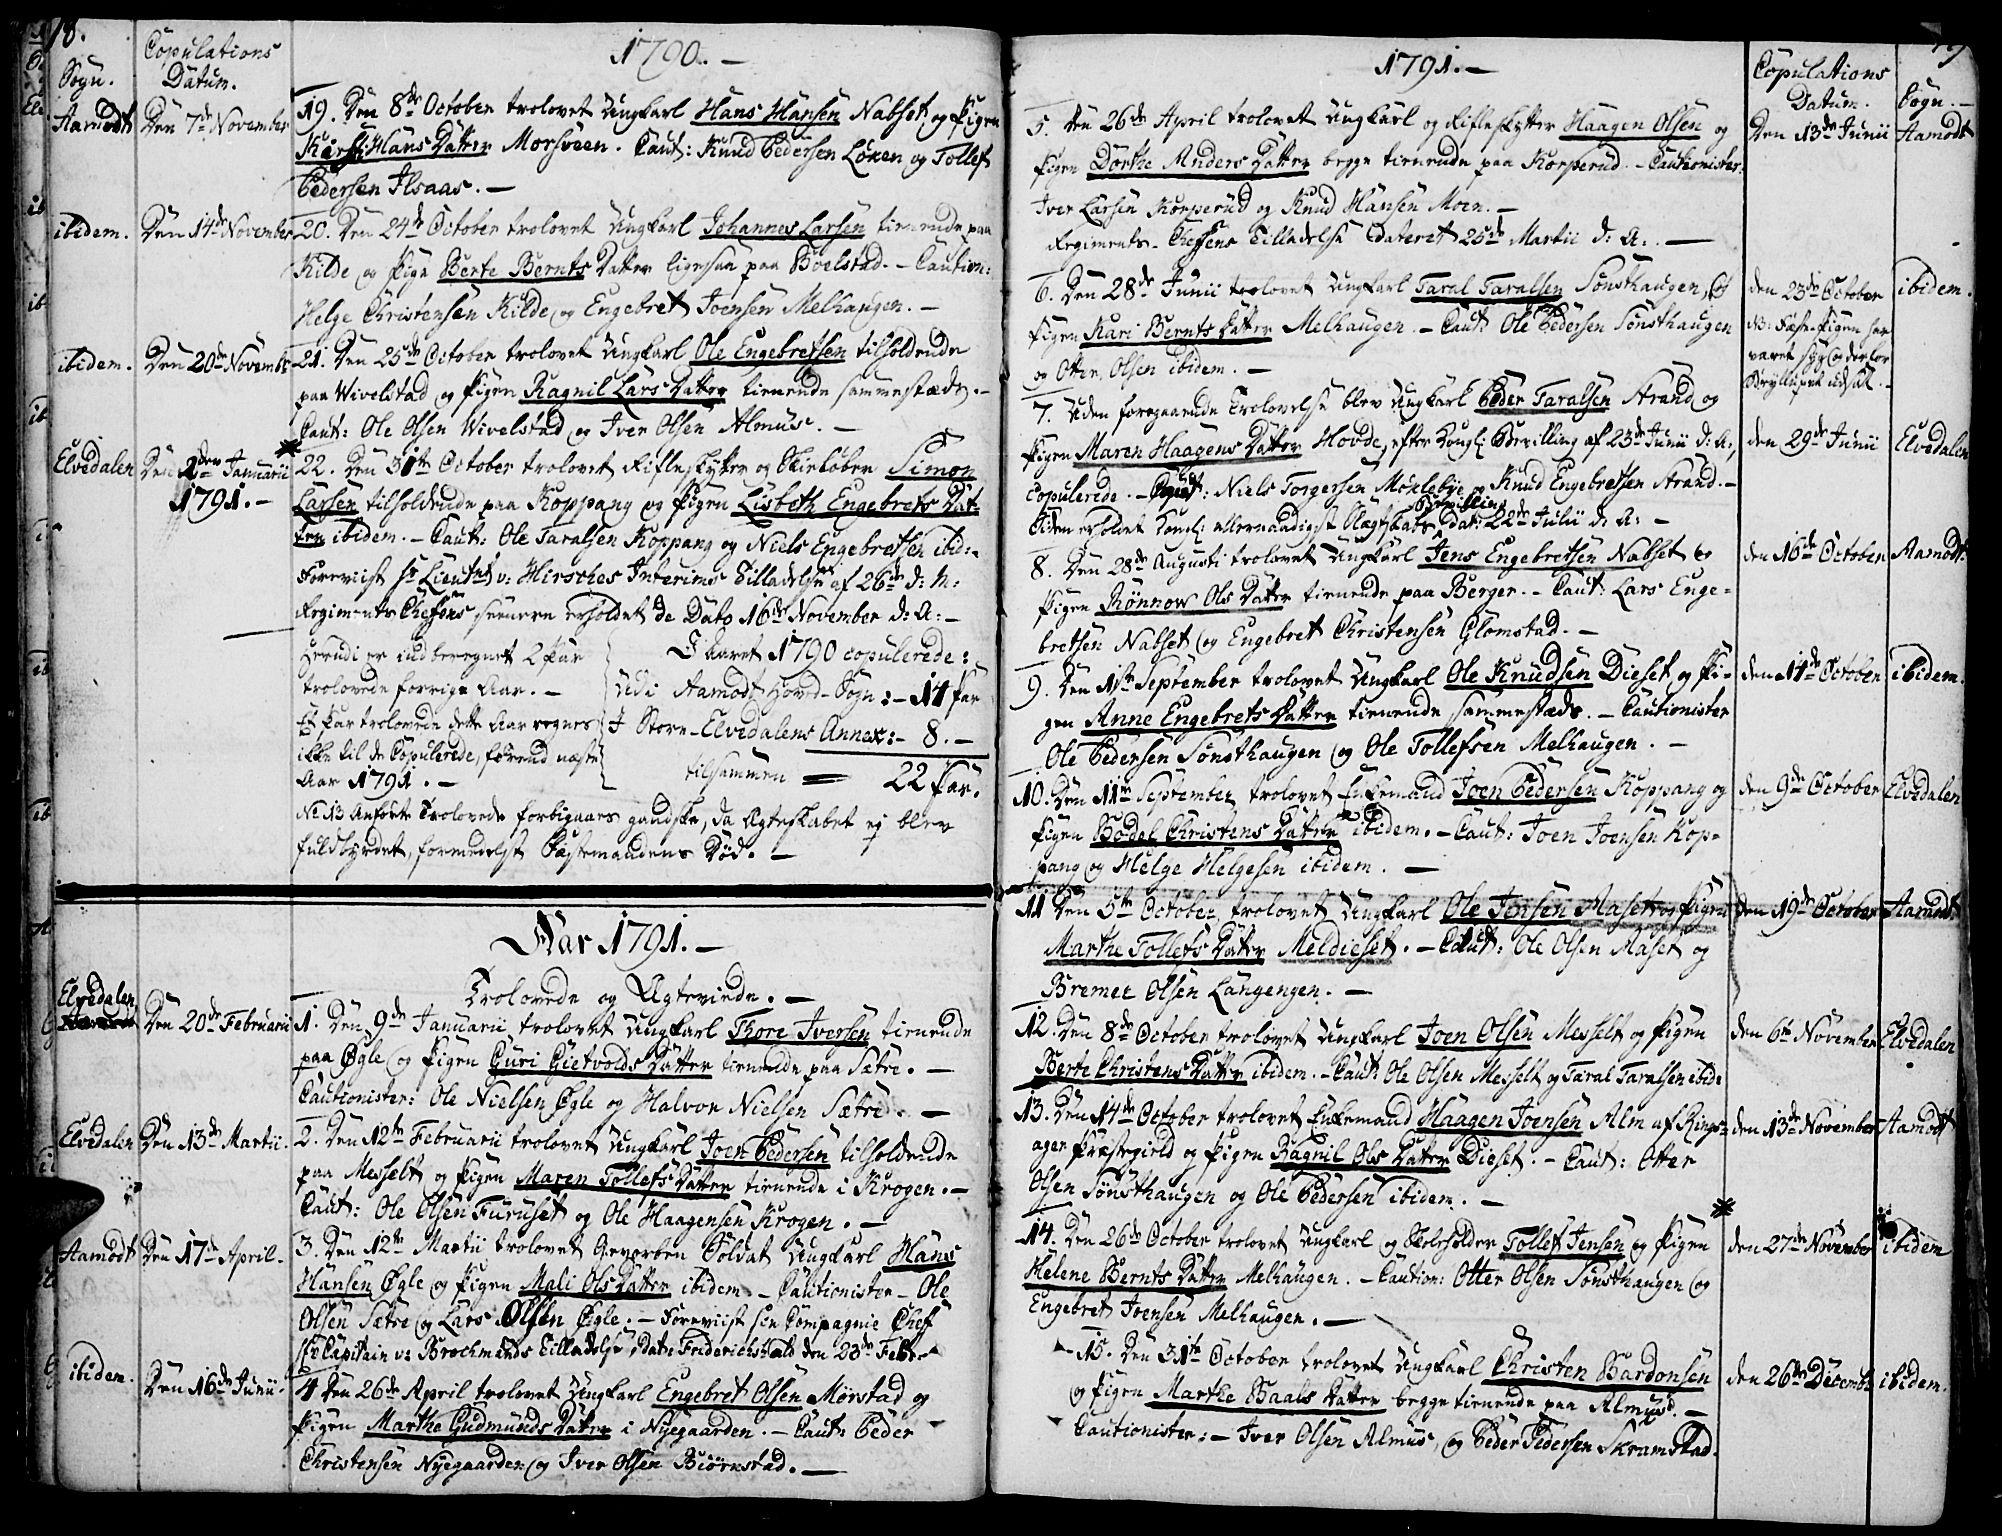 18.
1790. —
Sogn.
Copulations
Datum.
Aamodt
Den 7de November
19. Den 8de October trolovet Ungkarl Hans Hansen Nabset og Pigen
Kirsti Hans Datter Morsveen. Caut: Knud Pedersen Löken og Tollef
Pedersen Ilsaas. —
ibidem.
Den 14de November
20. Den 24de October trolovet Ungkarl Johannes Larsen tienende paa
Kilde og Pige Berte Bernts Datter ligesaa paa Boelstad. — Caution:
Helge Christensen Kilde og Engebret Joensen Melhaugen. —
ibidem.
Den 20de Novembr
21. Den 25de October trolovet Ungkarl Ole Engebretsen tilholdende
paa Wivelstad og Pigen Ragnil Lars Datter tienende sammestæds. —
Caut: Ole Olsen Wivelstad og Iver Olsen Almüs. —
Elvedalen
Den 2den Januarii
1791. —
22. Den 31te October trolovet Rifleskytter og Skielöber Simon
Larsen tilholdende paa Koppang og Pigen Lisbeth Engebrets Dat-
ter ibidem. — Caut: Ole Taralsen Koppang og Niels Engebretsen ibid:
Foreviist Hr Lieutnt v: Hirsches Interims Tilladelse af 26de d: M:
Regiments Chefens seenere erholdet de Dato 16de November d: A: —
Herudi er indberegnet 2 Par
trolovede forrige Aar. —
Et Par trolovede dette Aar regnes
ikke til de Copulerede, förend næste
Aar 1791. —
I Aaret 1790 copulerede:
Udi Aamodt Hoved-Sogn: — 14 Par
I Store-Elvedalens Annex: — 8. —
tilsammen = 22 Par.
No 13 anförte Trolovede forbigaaes gandske, da Ægteskabet ej blev
fuldbyrdet, formedelst Fæstemandens Död. —
Aar 1791. —
Trolovede og Ægteviede. —
Elvedalen
Den 20de Februarii
1. Den 9de Januarii trolovet Ungkarl Thore Iversen tienende
paa Øgle og Pigen Guri Gietvolds Datter tienende paa Sætre. —
Cautionister: Ole Nielsen Øgle og Halvor Nielsen Sætre. —
Elvedalen
Den 13de Martii.
2. Den 12te Februarii trolovet Ungkarl Joen Pedersen tilholdende
paa Messelt og Pigen Maren Tollefs Datter tienende i Krogen. —
Caut: Ole Olsen Furuset og Ole Haagensen Krogen. —
Aamodt
Den 17de April.
3. Den 12te Martii trolovet Gevorben Soldat Ungkarl Hans
Hansen Øgle og Pigen Mali Ols Datter ibidem — Cautionister — Ole
Olsen Sætre og Lars Olsen Øgle. — Foreviist sin Compagnie Chef
Hr Capitain v: Brochmands Tilladelse, dat: Friderichshald den 23de Febr —
ibidem.
Den 16de Junii.
4. Den 26de April trolovet Ungkarl Engebret Olsen Mörstad og
Pigen Marthe Gudmunds Datter i Nyegaarden. — Caut: Peder
Christensen Nyegaarden og Iver Olsen Biörnstad. —
19
1791. —
Copulations
Datum.
Sogn. —
5. Den 26de April trolovet Ungkarl og Rifleskytter Haagen Olsen og
Pigen Dorthe Anders Datter begge tienende paa Korperud. — Cautionister:
Iver Larsen Korperud og Knud Hansen Moen. —
Regiments-Chefens Tilladelse dateret 25de Martii d: A: —
Den 13de Junii
Aamodt
6. Den 28de Junii trolovet Ungkarl Taral Taralsen Sönsthaugen, og
Pigen Kari Bernts Datter Melhaugen. — Caut: Ole Pedersen Sönsthaugen
og Otter Olsen ibidem. —
den 23de October
NB: Fæste-Pigen har
været syg og derfor
Bryllupet udsat. —
ibidem.
7. Uden foregaaende Trolovelse blev Ungkarl Peder Taralsen Strand og
Pigen Maren Haagens Datter Hovde, efter Kongl: Bevilling af 23de Junii d: A:,
copulerede. — Caut: Niels Torgersen Moxlebye og Knud Engebretsen Strand. —
Siden erholdet Kongl: allernaadigst Slægtskabs Bevilling dat: 22de Julii d: A: —
den 29de Junii
Elvedalen
8. Den 28de Augusti trolovet Ungkarl Jens Engebretsen Nabset og
Pigen Rönnow Ols Datter tienende paa Berger. — Caut: Lars Enge-
bretsen Nabset og Engebret Christensen Glomstad. —
den 16de October
Aamodt.
9. Den 11te September trolovet Ungkarl Ole Knudsen Dieset og Pi-
gen Anne Engebrets Datter tienende sammestæds. — Cautionister
Ole Pedersen Sönsthaugen og Ole Tollefsen Melhaugen. —
den 14de October
ibidem.
10. Den 11te September trolovet Enkemand Joen Pedersen Koppang og
Pigen Bodel Christens Datter ibidem. — Caut: Joen Joensen Kop-
pang og Helge Helgesen ibidem. —
den 9de October
Elvedalen
11 Den 5te October trolovet Ungkarl Ole Jensen Maset og Pigen
Marthe Tollefs Datter Meldieset. — Caut: Ole Olsen Aaset og
Bremer Olsen Langengen. —
den 19de October
Aamodt
12. Den 8de October trolovet Ungkarl Joen Olsen Messelt og Pigen
Berte Christens Datter ibidem. — Caut: Ole Olsen Messelt og Taral Taralsen ibid:
den 6te November
Elvedalen
13. Den 14de October trolovet Enkemand Haagen Joensen Alm af Rings-
ager Præstegield og Pigen Ragnil Ols Datter Dieset. — Caut: Otter
Olsen Sönsthaugen og Ole Pedersen ibidem. —
den 13de November
Aamodt
14. Den 26de October trolovet Ungkarl og Skoleholder Tollef Jensen og Pigen
Helene Bernts Datter Melhaugen. — Caution: Otter Olsen Sönsthaugen og
Engebret Joensen Melhaugen. —
den 27de November
ibidem
15. Den 31te October trolovet Ungkarl Christen Bardonsen
og Pigen Marthe Baals Datter begge tienende paa Almüs. —
Cautionister: — Iver Olsen Almüs, og Peder Pedersen Skramstad.
den 26de Decembr
ibidem.